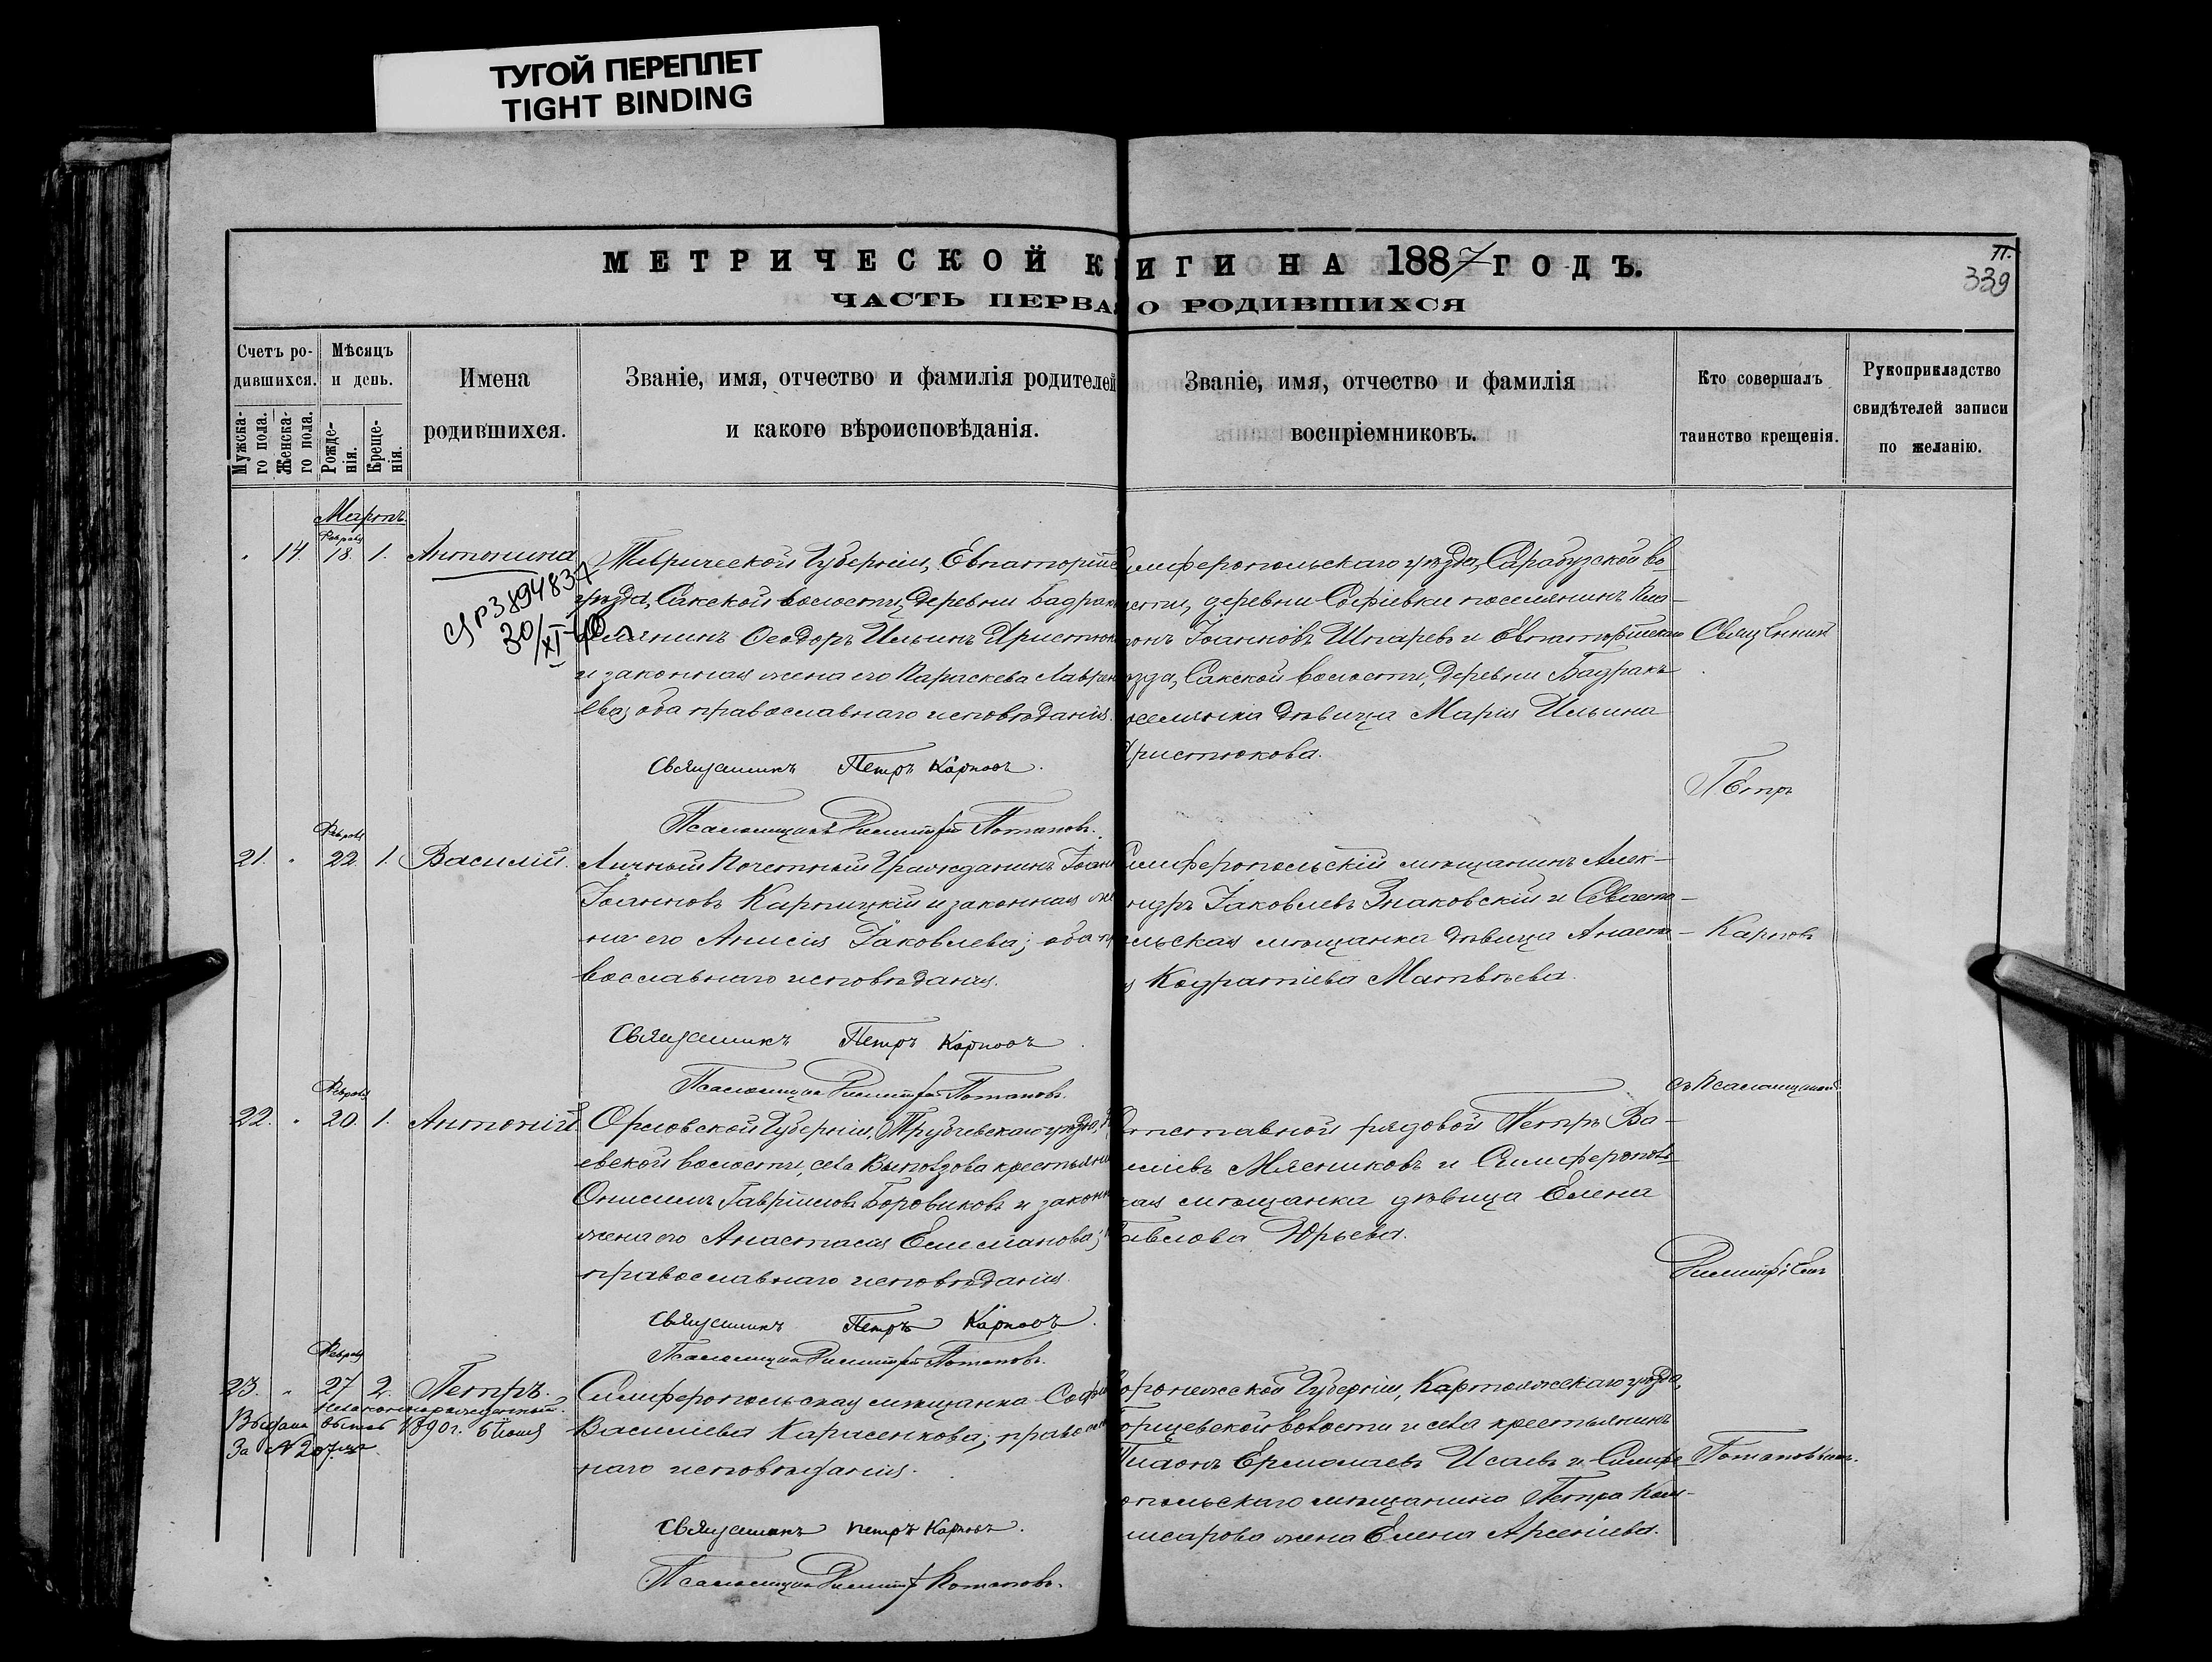 ТУГОЙ ПЕРЕПЛЕТ
TIGHT BINDING
МЕТРИЧЕСКОЙ К ИГИ НА 1887 ГОДЪ.
ЧАСТЬ ПЕРВА О РОДИВШИХСЯ
339
Счетъ родившихся.
Мужска-
го пола.
Женска-
го пола.
Мѣсяцъ
и день.
Рожде-
нія.
Креще-
нія.
Имена
родившихся.
Званіе, имя, отчество и фамилія родителей
и какого вѣроисповѣданія.
Званіе, имя, отчество и фамилія
воспріемниковъ.
Кто совершалъ
таинство крещенія.
Рукоприкладство
свидѣтелей записи
по желанію.
Мартъ
Февраля
14. 18. 1. Антонина
Таврической Губерніи, Евпаторійс
уѣзда, Сакской волости, деревни Бадрак
селянинъ Ѳеодоръ Ильинъ Христюк
и законная жена его Параскева Лаврен
ева; оба православнаго исповѣданія.
Священникъ Петръ Карповъ.
Псаломщикъ Димитрій Потаповъ.
имферопольскаго уѣзда, Сарабузской во
лости, деревни Софіевки поселянинъ Пла-
тонъ Іоанновъ Шпаревъ и Евпаторійскаго
ѣзда, Сакской волости, деревни Бадракъ
оселянка дѣвица Марія Ильина
Христюкова.
Февраля
21. 22. 1. Василій.
Личный Почетный Гражданинъ Іоан
Іоанновъ Карпицкій и законная же
на его Анисія Іаковлева; оба п
вославнаго исповѣданія.
Священникъ Петръ Карповъ.
Псаломщикъ Димитрій Потаповъ.
Симферопольскій мѣщанинъ Алек-
ндръ Іаковлевъ Знаковскій и Севасто-
льская мѣщанка дѣвица Анаста-
я Кодратіева Матвѣева.
Февраля
22. 20. 1. Антоній
Орловской Губерніи, Трубчевскаго уѣзда,
евской волости, села Выползова крестьяни
Онисимъ Гавріиловъ Боровиковъ и законн
жена его Анастасія Емеліанова;
православнаго исповѣданія.
Священникъ Петръ Карповъ.
Псаломщикъ Димитрій Потаповъ.
Отставной рядовой Петръ Ва-
иліевъ Мясниковъ и Симферополь
кая мѣщанка дѣвица Елена
Павлова Юрьева.
Февраля
23. 27 2. Петръ.
незаконнорожденный.
Выдана выпись 1890 г. 6 Іюня
За № 207.
Симферопольская мѣщанка Софія
Василіева Карасенкова; правосла
наго исповѣданія.
Священникъ Петръ Карповъ.
Псаломщикъ Димитрій Потаповъ.
оронежской Губерніи, Коротоякскаго уѣзда,
волости и села крестьянинъ
Ермолаевъ Исаевъ и Симфе-
опольскаго мѣщанина Петра Ком-
исарова жена Елена Арсеніева.
Священникъ
Петръ
Карповъ
съ Псаломщикомъ
Димитріемъ
Потаповымъ.